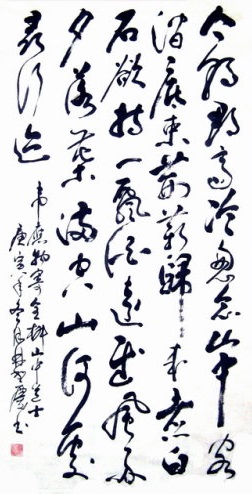 今朝郡斋冷忽念山中客
涧底束荆薪歸来煮白
石欲持一瓢酒遠慰風雨
夕落葉满空山何處
尋行迹
韦應物寄全椒山中道士
庚寅年